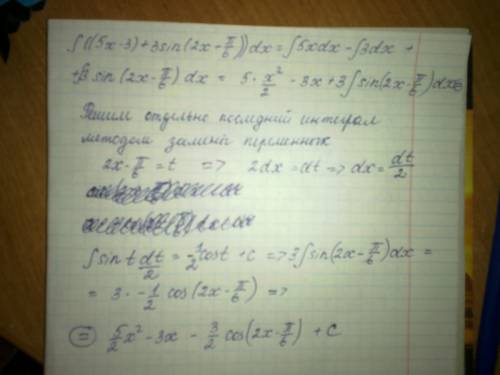 ∫((5x-3)+3sin(2x-π/6))dx=∫5xdx-∫3dx +
+∫3 sin(2x-π/6)dx = 5·x²/2 - 3x+3∫sin(2x-π/6)dx⊜
Решим отдельно последний интеграл
методом замены переменных
2x-π/6=t => 2dx=dt=>dx=dt/2
∫sint dt/2 = -1/2 cost +c =>3∫sin(2x-π/6)dx =
= 3·-1/2 cos(2x-π/6) =>
⊜ 5/2x²-3x - 3/2 cos(2x-π/6) + C